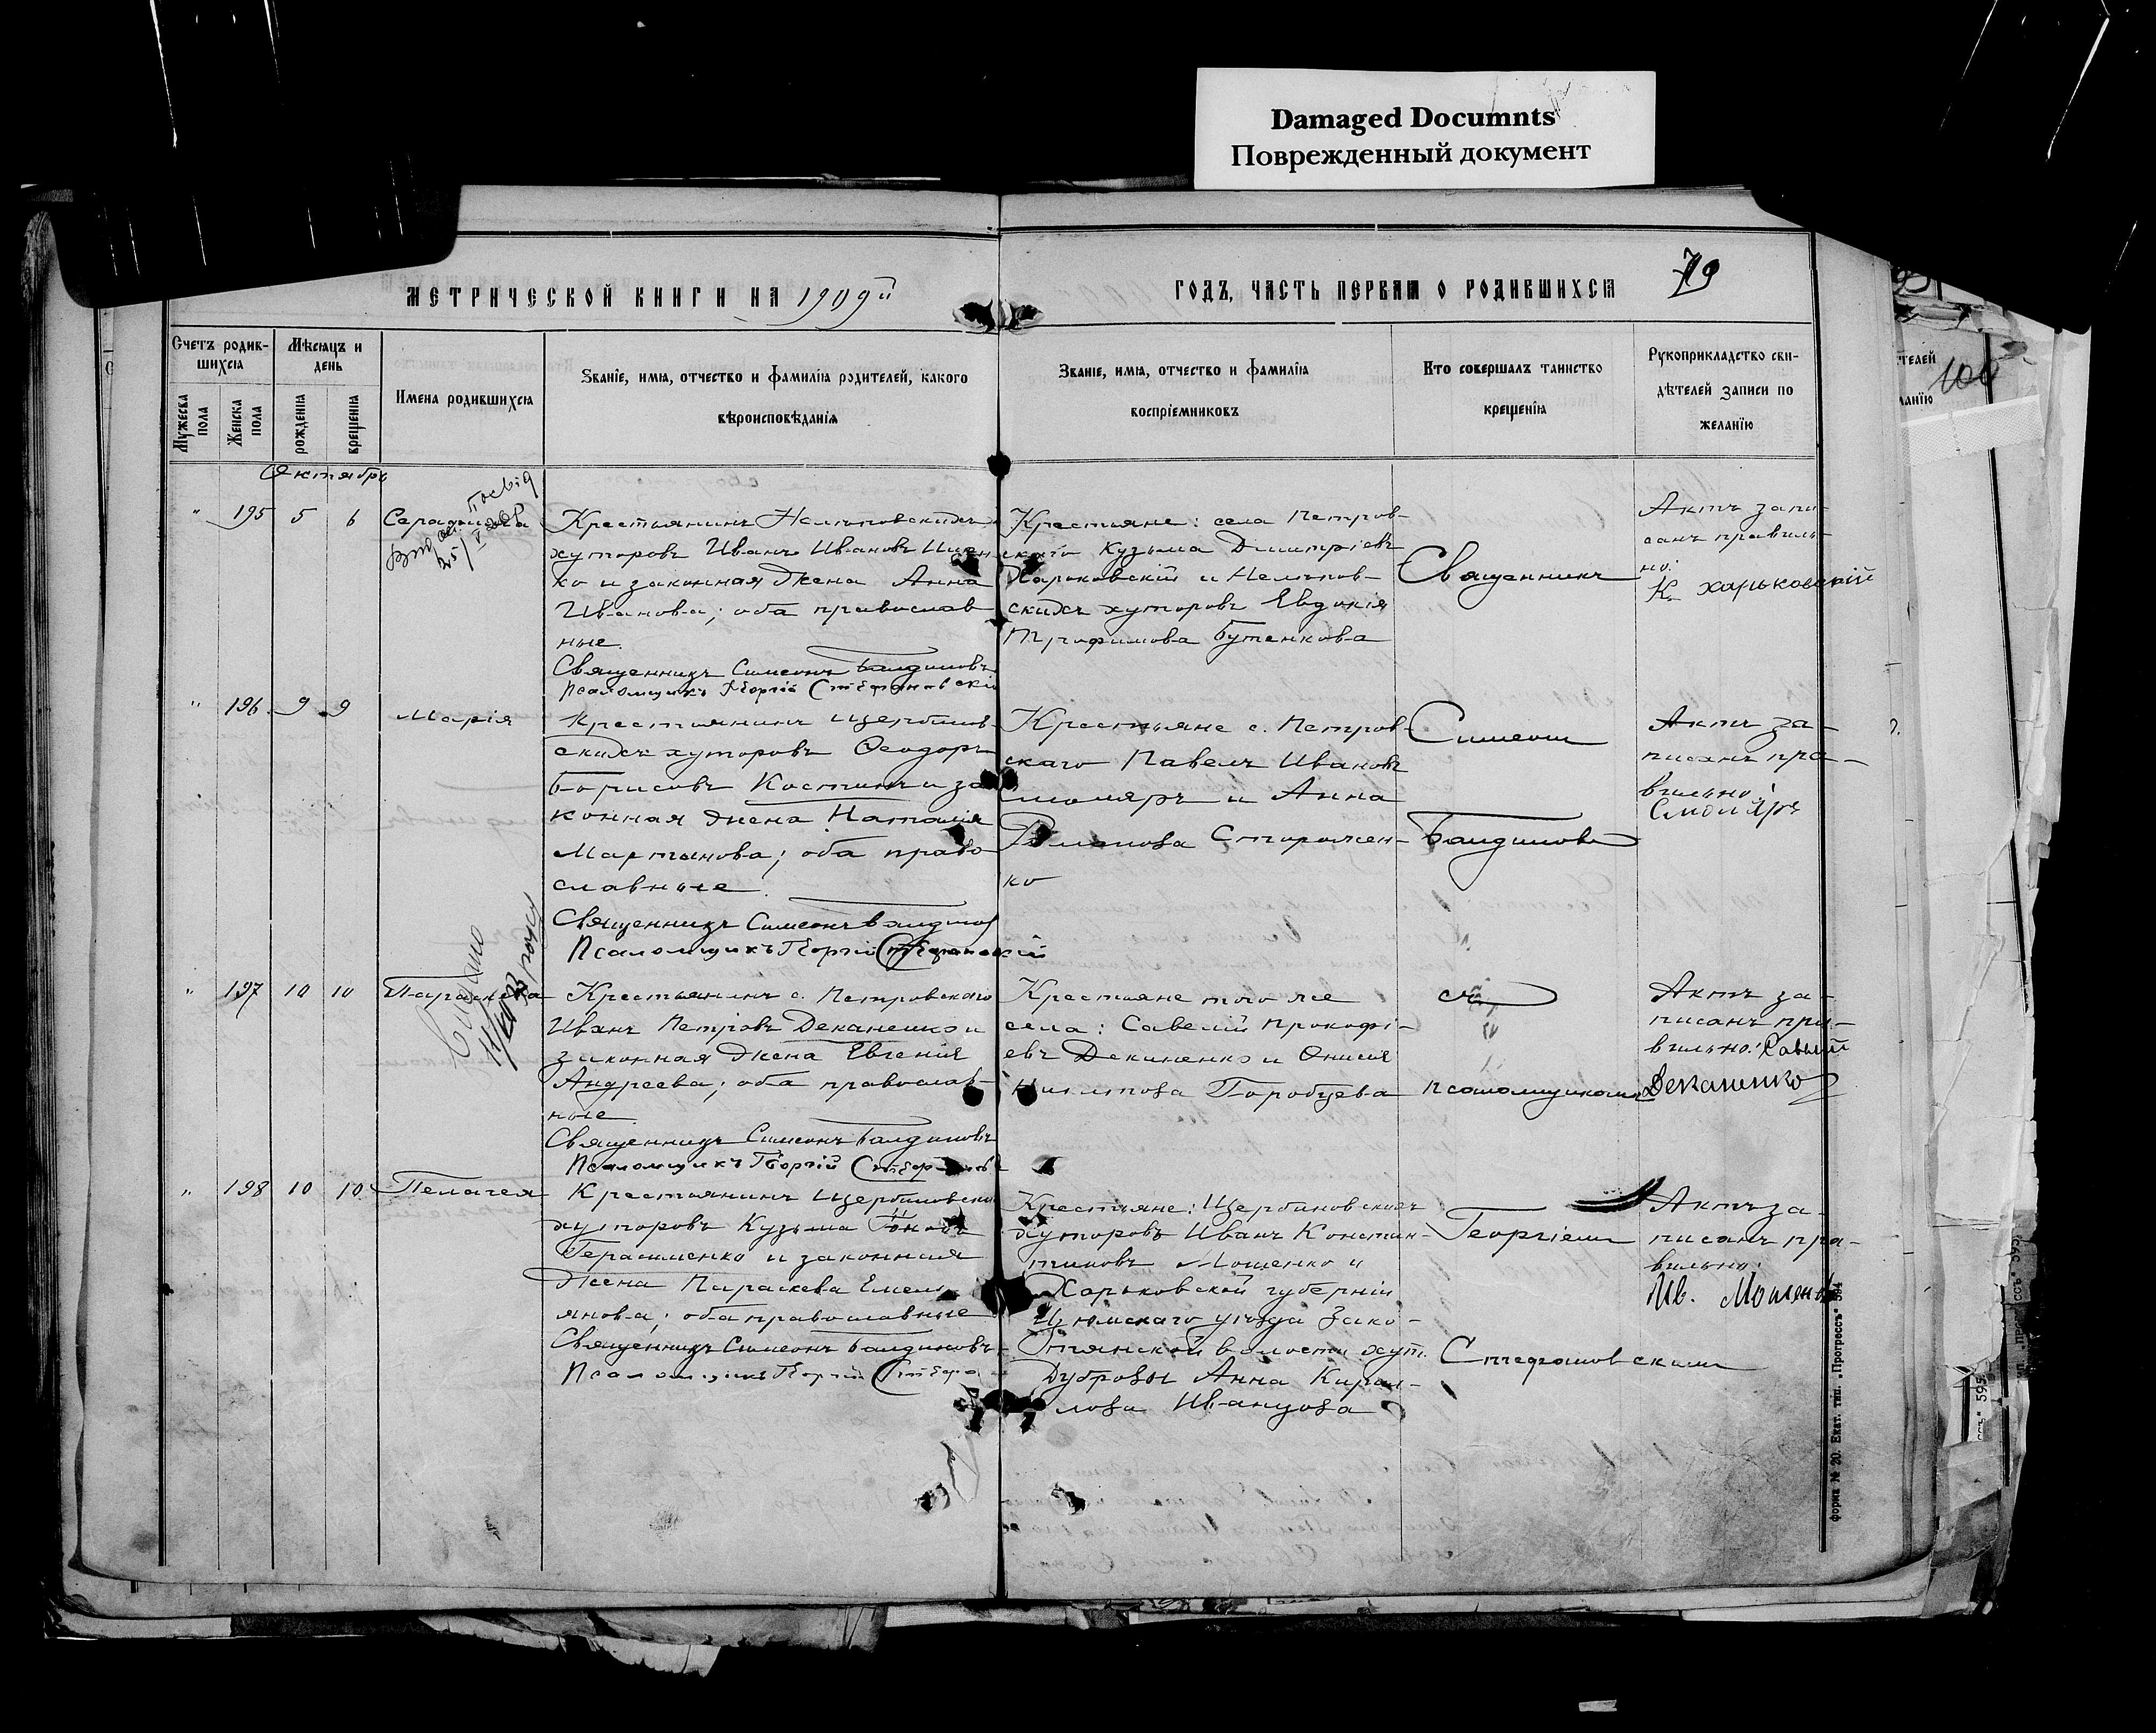 Damaged Documnts
Поврежденный документ
МЕТРИЧЕСКОЙ КНИГИ НА 1909й
ГОДЪ, ЧАСТЬ ПЕРВАЯ О РОДИВШИХСЯ
79
Счетъ родив-
шихся
Мѣсяцъ и
день
Мужеска пола
Женска пола
рожденія
крещенія
Имена родившихся
Званіе, имя, отчество и фамилія родителей, какого
вѣроисповѣданія
Званіе, имя, отчество и фамилія
воспріемниковъ
Кто совершалъ таинство
крещенія
Рукоприкладство сви-
дѣтелей записи по
желанію
100
Октябрь
" 195 5 6
Крестьянинъ
хуторовъ Иванъ Ивановъ
ко и законная жена Анна
Иванова; оба православ
ные.
Священникъ Симеонъ Балдиновъ
Псаломщикъ Георгій Стефановскій
Крестьяне: села Петров-
скаго Кузьма Димитріевъ
Харьковскій и
скихъ хуторовъ Евдокія
Трофимова Бутенкова
Священникъ
Актъ запи-
санъ правиль-
но:
К. Харьковскій
" 196 9 9
Марія
Крестьянинъ Щербинов-
скихъ хуторовъ Ѳеодоръ
Борисовъ Костинъ и за
конная жена Наталія
Мартынова; оба право
славные.
Священникъ Симеонъ Балдинов
Псаломщикъ Георгій Стефановскій
Крестьяне с. Петров-
скаго Павелъ Ивановъ
Смоляръ и Анна
Романова Сторожен-
ко
Симеонъ
Балдиновъ
Актъ за-
писанъ пра-
вильно:
Смоляръ
" 197 10 10
Параскева
Крестьянинъ с. Петровского
Иванъ Петровъ Деканенко и
законная жена Евгенія
Андреева; оба православ-
ные
Священникъ Симеонъ Балдиновъ
Псаломщикъ Георгій
Крестьяне того же
села: Савелій Прокофі-
евъ Деканенко и
Никитова Горобцева
съ
псаломщикомъ
Актъ за-
писанъ пра-
вильно: Савелій
Деканенко
" 198 10 10
Пелагея
Крестьянинъ Щербиновски
хуторовъ Кузьма
Герасименко и законная
жена Параскева Емель
янова; оба православные
Священникъ Симеонъ Балдиновъ
Псаломщикъ Георгій Стефа
Крестьяне: Щербиновскихъ
хуторовъ Иванъ Констан-
тиновъ Мошенко и
Харьковской губерніи
Изюмскаго уѣзда Зако-
тянской волости хут.
Дубровы Анна Кирил-
лова Иванцова
Георгіемъ
Стефановскимъ
Актъ за-
писанъ пра-
вильно:
Ив. Мошенко
Форма № 20. Екат. тип. „Прогрессъ" 594